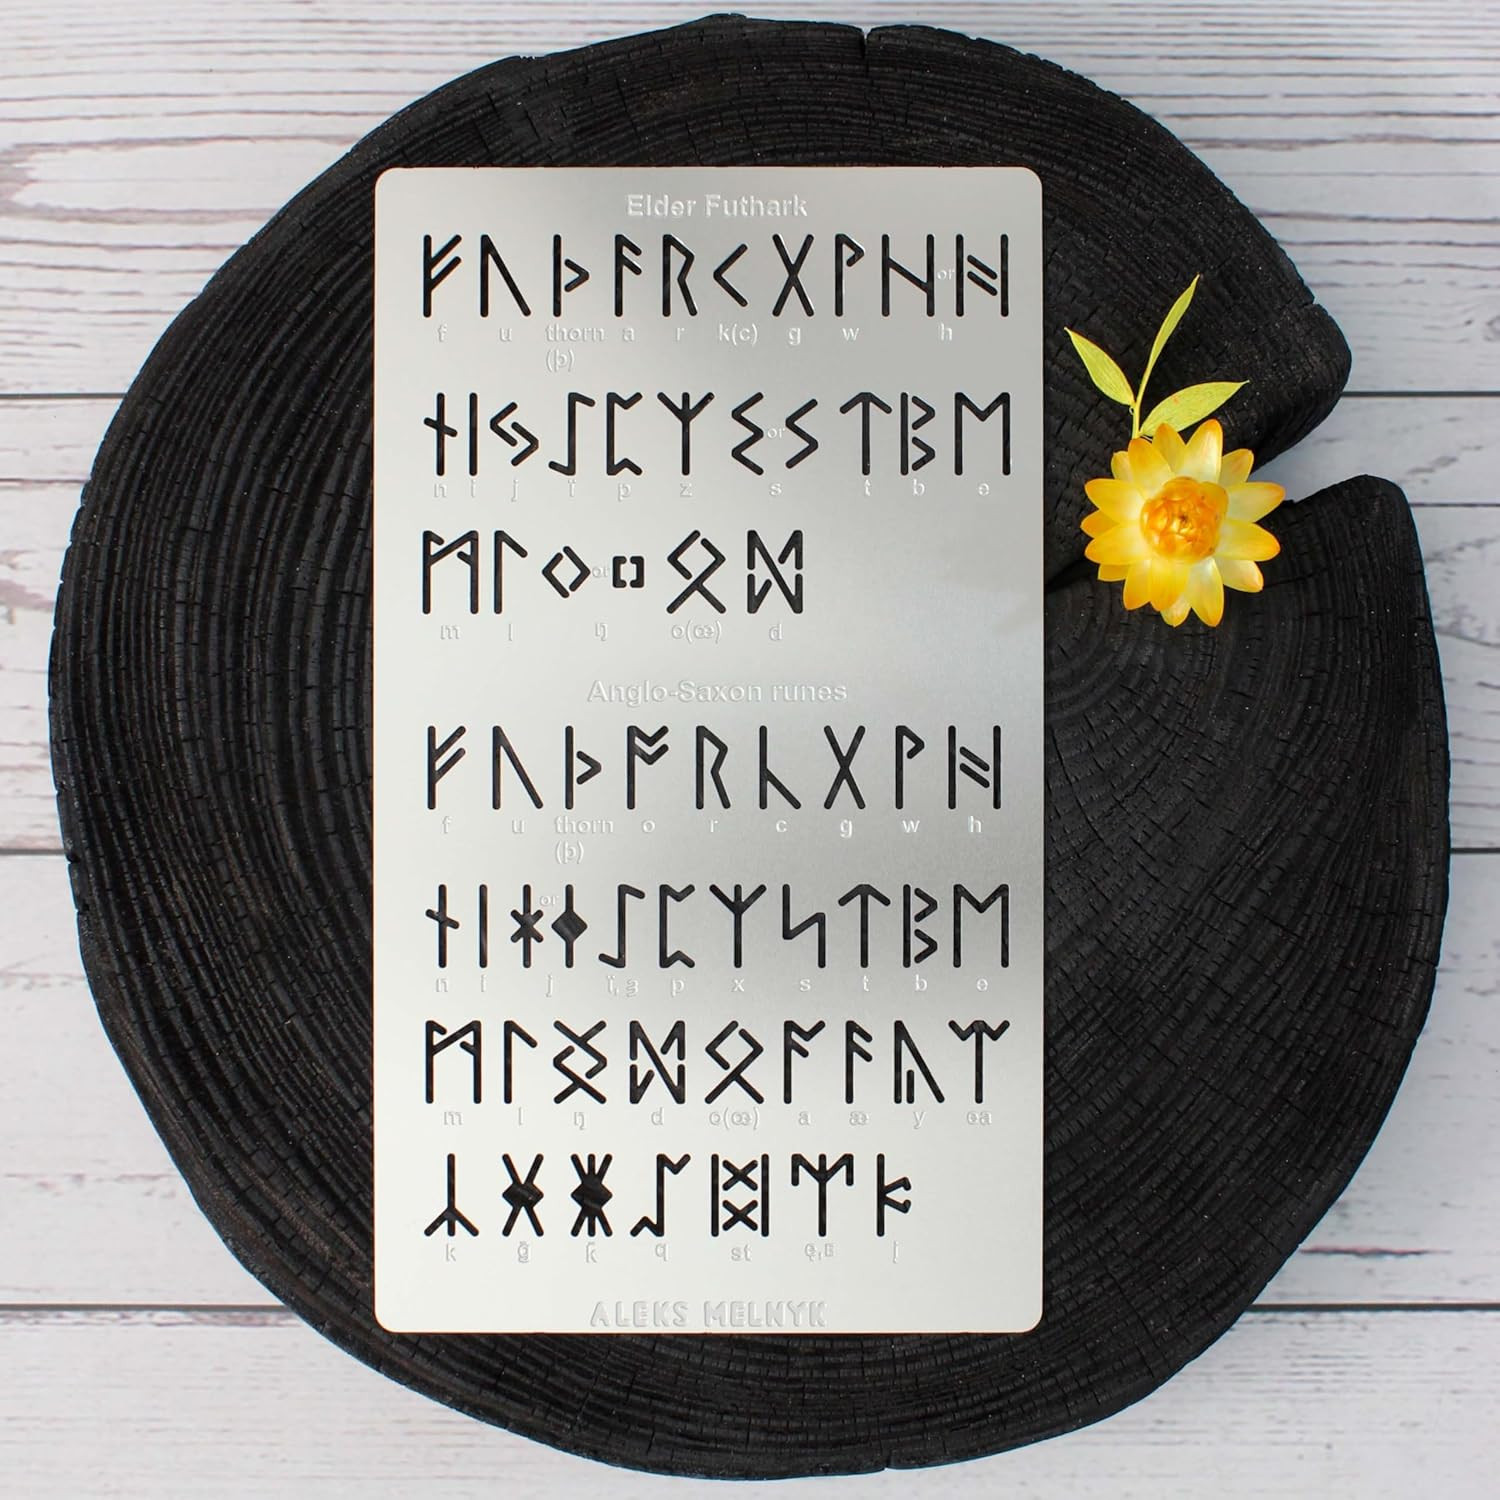 Elder Futhark
ᚠ ᚢ ᚦ ᚨ ᚱ ᚲ ᚷ ᚹ ᚺ or ᚻ
f u thorn a r k(c) g w h
(þ)
ᚾ ᛁ ᛃ ᛇ ᛈ ᛉ ᛊ or ᛋ ᛏ ᛒ ᛖ
n i j ï p z s t b e
ᛗ ᛚ ᛜ or ᛜ ᛟ ᛞ
m l ŋ o(œ) d
Anglo-Saxon runes
ᚠ ᚢ ᚦ ᚩ ᚱ ᚳ ᚷ ᚹ ᚻ
f u thorn o r c g w h
(þ)
ᚾ ᛁ ᛡ or ᛄ ᛇ ᛈ ᛉ ᛋ ᛏ ᛒ ᛖ
n i j ï,ȝ p x s t b e
ᛗ ᛚ ᛝ ᛞ ᛟ ᚪ ᚫ ᚣ ᛠ
m l ŋ d o(œ) a æ y ea
ᛣ ᚸ ᛤ ᛢ ᛥ
k ḡ k̄ q st j
ALEKS MELNYK